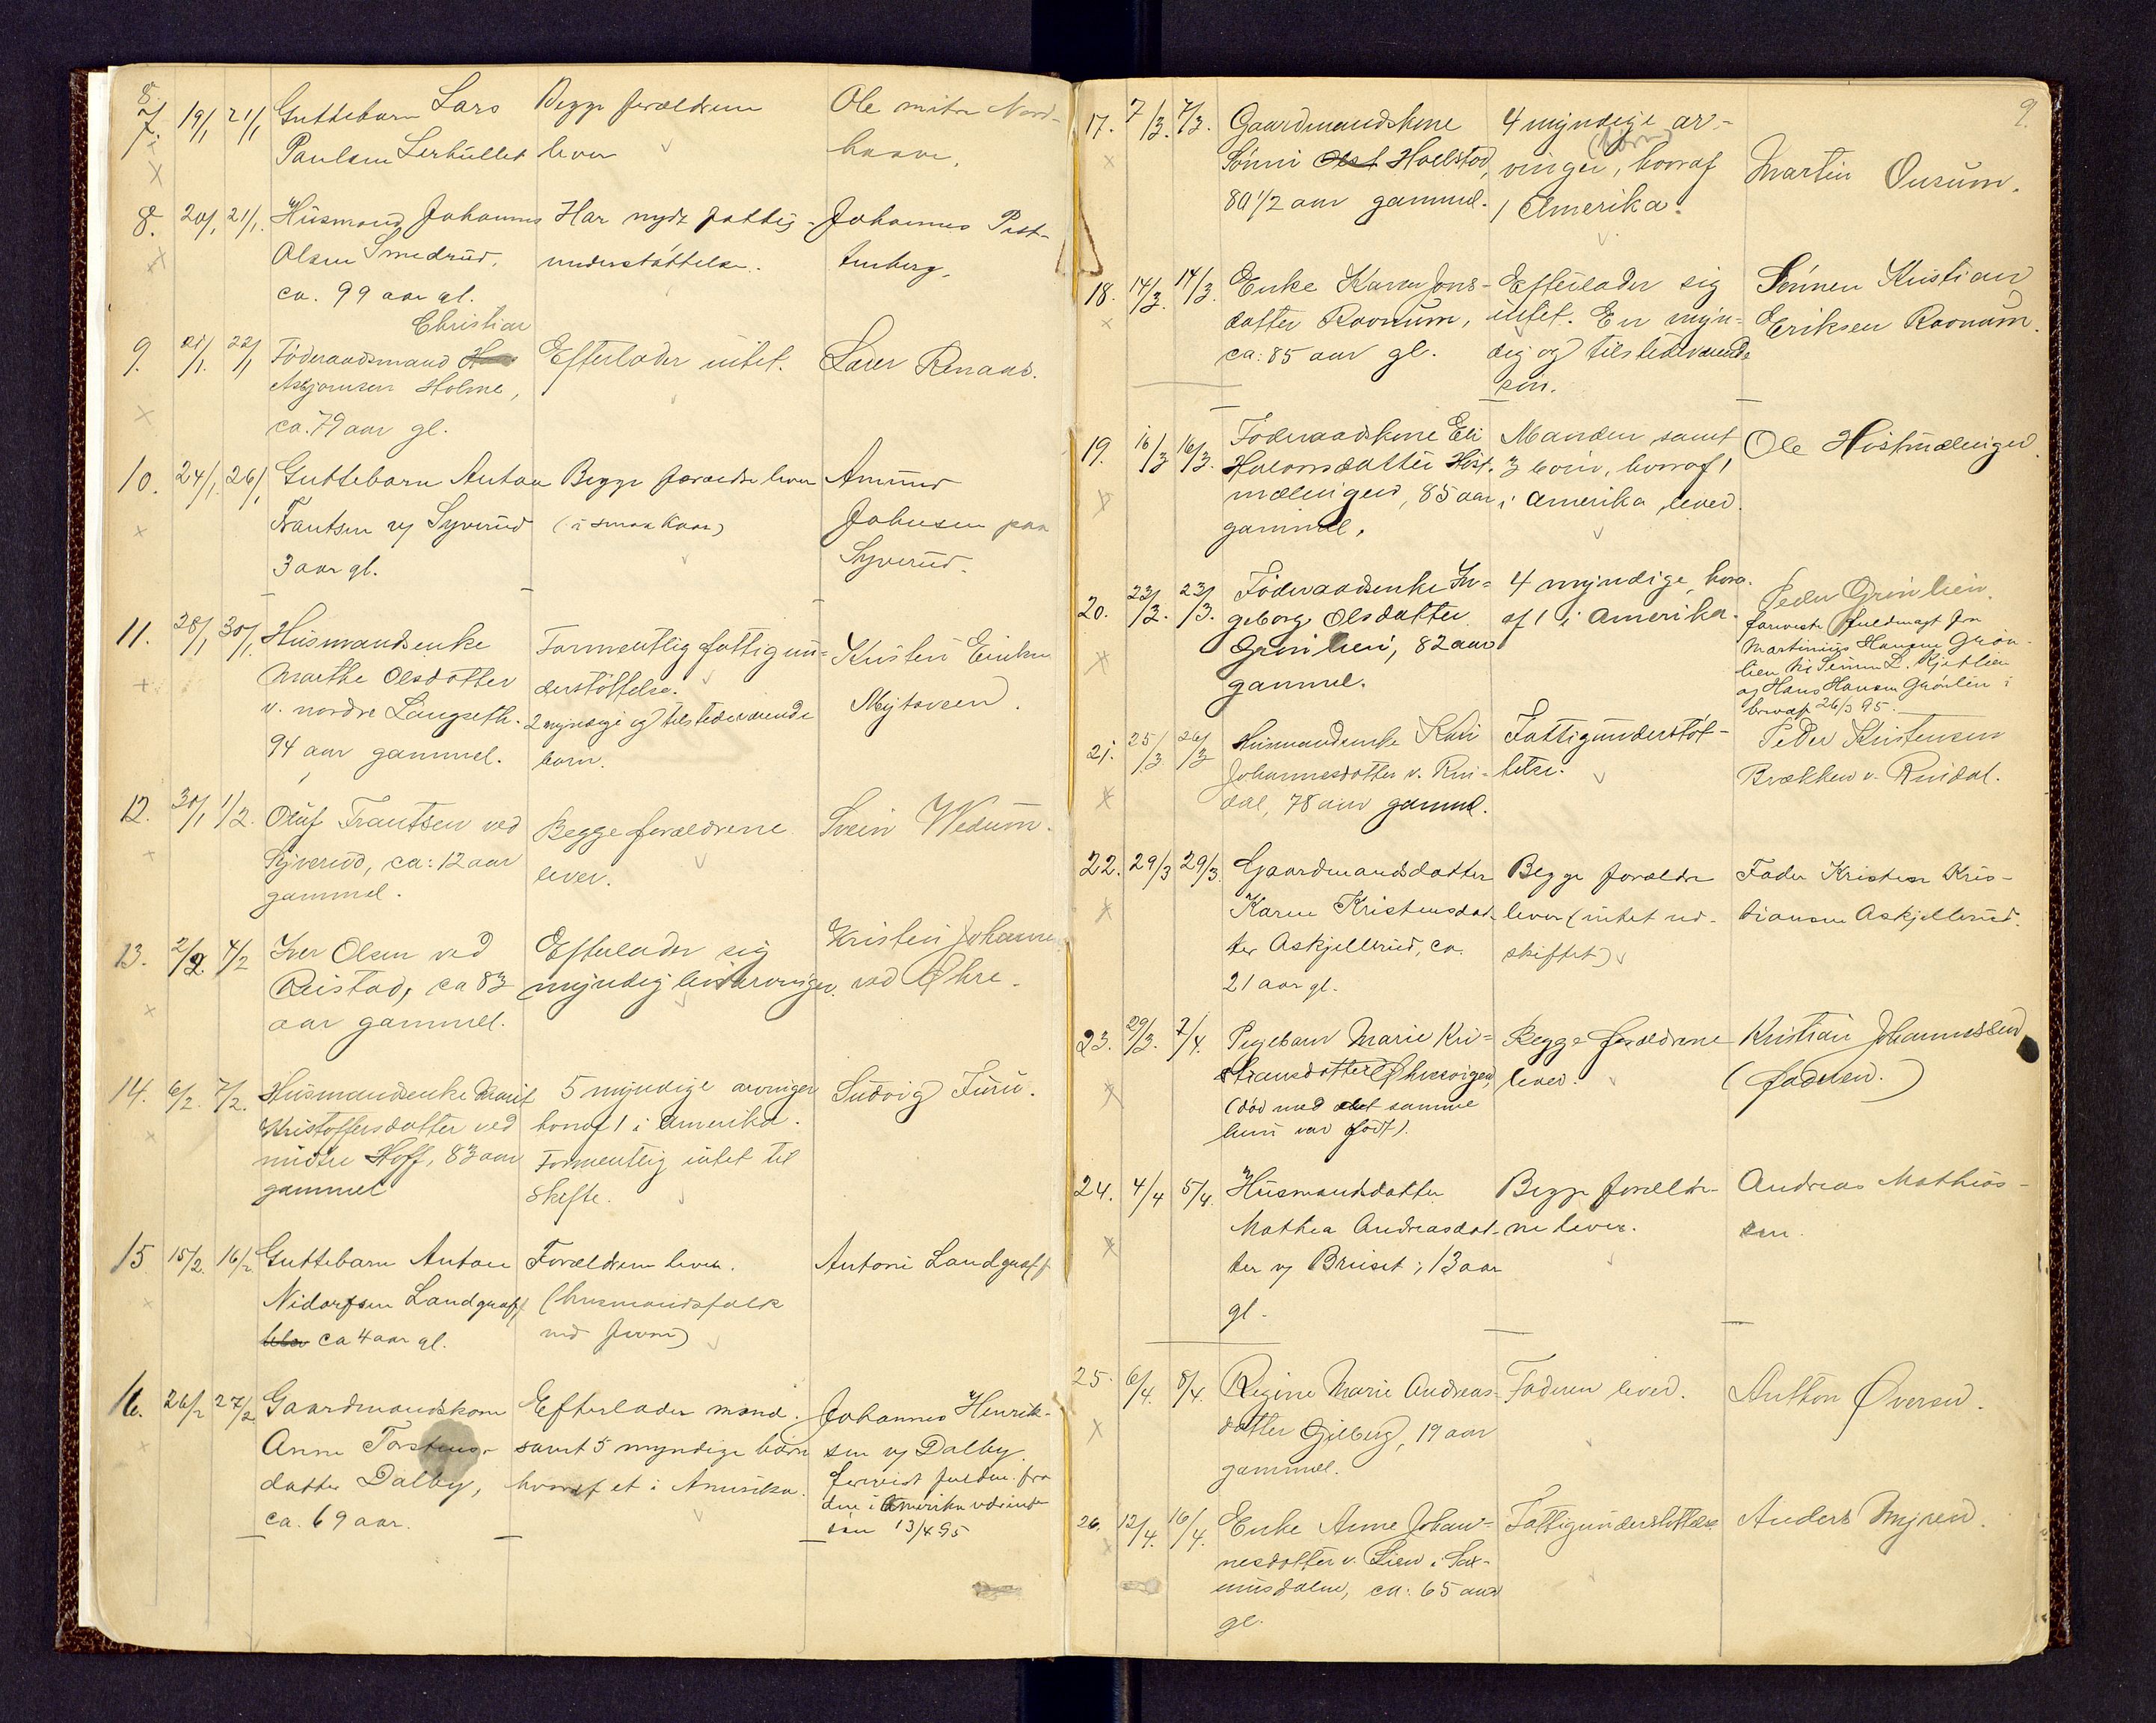 8
7. 19/1 21/1 Guttebarn Lars Begge forældrene Ole mitre Nord-
Paulsen Lerhullet lever haave.
8. 20/1. 21/1. Husmand Johannes Har nydt fattig- Johannes Prest-
Olsen Smedrud, understøttelse. enberg.
ca. 99 aar gl.
Christian
9. 21/1. 22/1 Føderaadsmand Efterlader intet. Lars Renaas.
Asbjørnsen Holme,
ca. 79 aar gl.
10. 24/1. 26/1 Guttebarn Anton Begge forældre lever Amund
Frantsen v/ Syverud (i smaa kaar) Johnsen paa
3 aar gl. Syverud.
11. 28/1 30/1. Husmandsenke Formentlig fattigun- Kristen Eriksen
Marthe Olsdatter derstøttelse. Mytaveen.
v. nordre Langseth. 2 myndige og tilstedeværende
94 aar gammel. børn.
12. 30/1 1/2. Oluf Frantsen ved Begge forældrene Svein Wedum.
Syverud, ca: 12 aar lever.
gammel.
13. 2/2. 4/2 Iver Olsen ved Efterlader sig Kristen Johannes
Reistad, ca 83 myndig livsarvinger. ved Øhre.
aar gammel.
14. 6/2. 7/2. Husmandsenke Marit 5 myndige arvinger Ludvig Furu.
Kristoffersdatter ved horaf 1 i Amerika.
midtre Hoff, 83 aar Formentlig intet til
gammel Skifte.
15 15/2. 16/2. Guttebarn Anton Forældrene lever. Antoni Landgraff
Nidarfsen Landgraff (husmandsfolk
ca 4 aar gl. ved Juvne)
16. 26/2 27/2 Gaardmandskone Efterlader mand. Johannes Henrik-
Anne Torstens- samt 5 myndige børn sen v/ Dalby.
datter Dalby, hvoraf et i Amerika. forevist fuldm. fra
ca. 69 aar. den i Amerika værende
søn 13/4 95
9.
17. 7/3. 7/3. Gaardmandskone 4 myndige ar-
(børn)
Sønni Hollstad, vinger, hvoraf Martin Ourum.
80 1/2 aar gammel. 1 Amerika.
18. 14/3. 14/3. Enke Karen Jons- Efterlader sig Sønnen Kristian
datter Ravnum, intet. En myn- Eriksen Ravnum.
ca: 85 aar gl. dig og tilstedeværende
søn.
19. 16/3 16/3. Føderaadskone Eli Manden samt Ole Histmælingen.
Haconsdatter Hist- 3 børn, hvoraf 1
mælingen, 85 aar i Amerika, lever.
gammel.
20. 23/3. 23/3. Føderaadsenke In- 4 myndige, hvor- Peder Grønlien.
geborg Olsdatter af 1 i Amerika. foreviste fuldmagt fra
Grønlien, 82 aar Martinius Hansen Grøn-
gammel. lien, L. Kjetlien
og Hans Hansen Grønlien i
26/3 95.
21. 25/3 26/3 Husmandsenke Kari Fattigunderstøt- Peder Kristensen
Johannesdatter v. Rui- telse. Brækken v. Ruidal.
dal, 78 aar gammel.
22. 29/3 29/3. Gaardmandsdatter Begge forældre Fader Kristen Kris-
Karen Kristensdat- lever (intet ud- tiansen Askjellerud.
ter Askjellerud, ca. skiftet)
21 aar gl.
23. 29/3. 2/4. Pigebarn Marie Kri- Begge forældrene Kristian Johannessen
stiansdatter Øhresvigen, lever. (faderen.)
(død med det samme
hun var født).
24. 4/4 5/4. Husmandsdatter Begge forældre- Andreas Mathias-
Mathea Andreasdat- ne lever. sen.
ter v/ Bruset, 13 aar
gl.
25. 6/4. 8/4. Regine Marie Andreas- Faderen lever. Anthon Øversen.
datter Gjilberg, 19 aar
gammel.
26. 12/4. 16/4. Enke Anne Johan- Fattigunderstøttelse Anders Myren.
nesdatter v. Lien i Sax-
umsdalen, ca: 65 aar
gl.